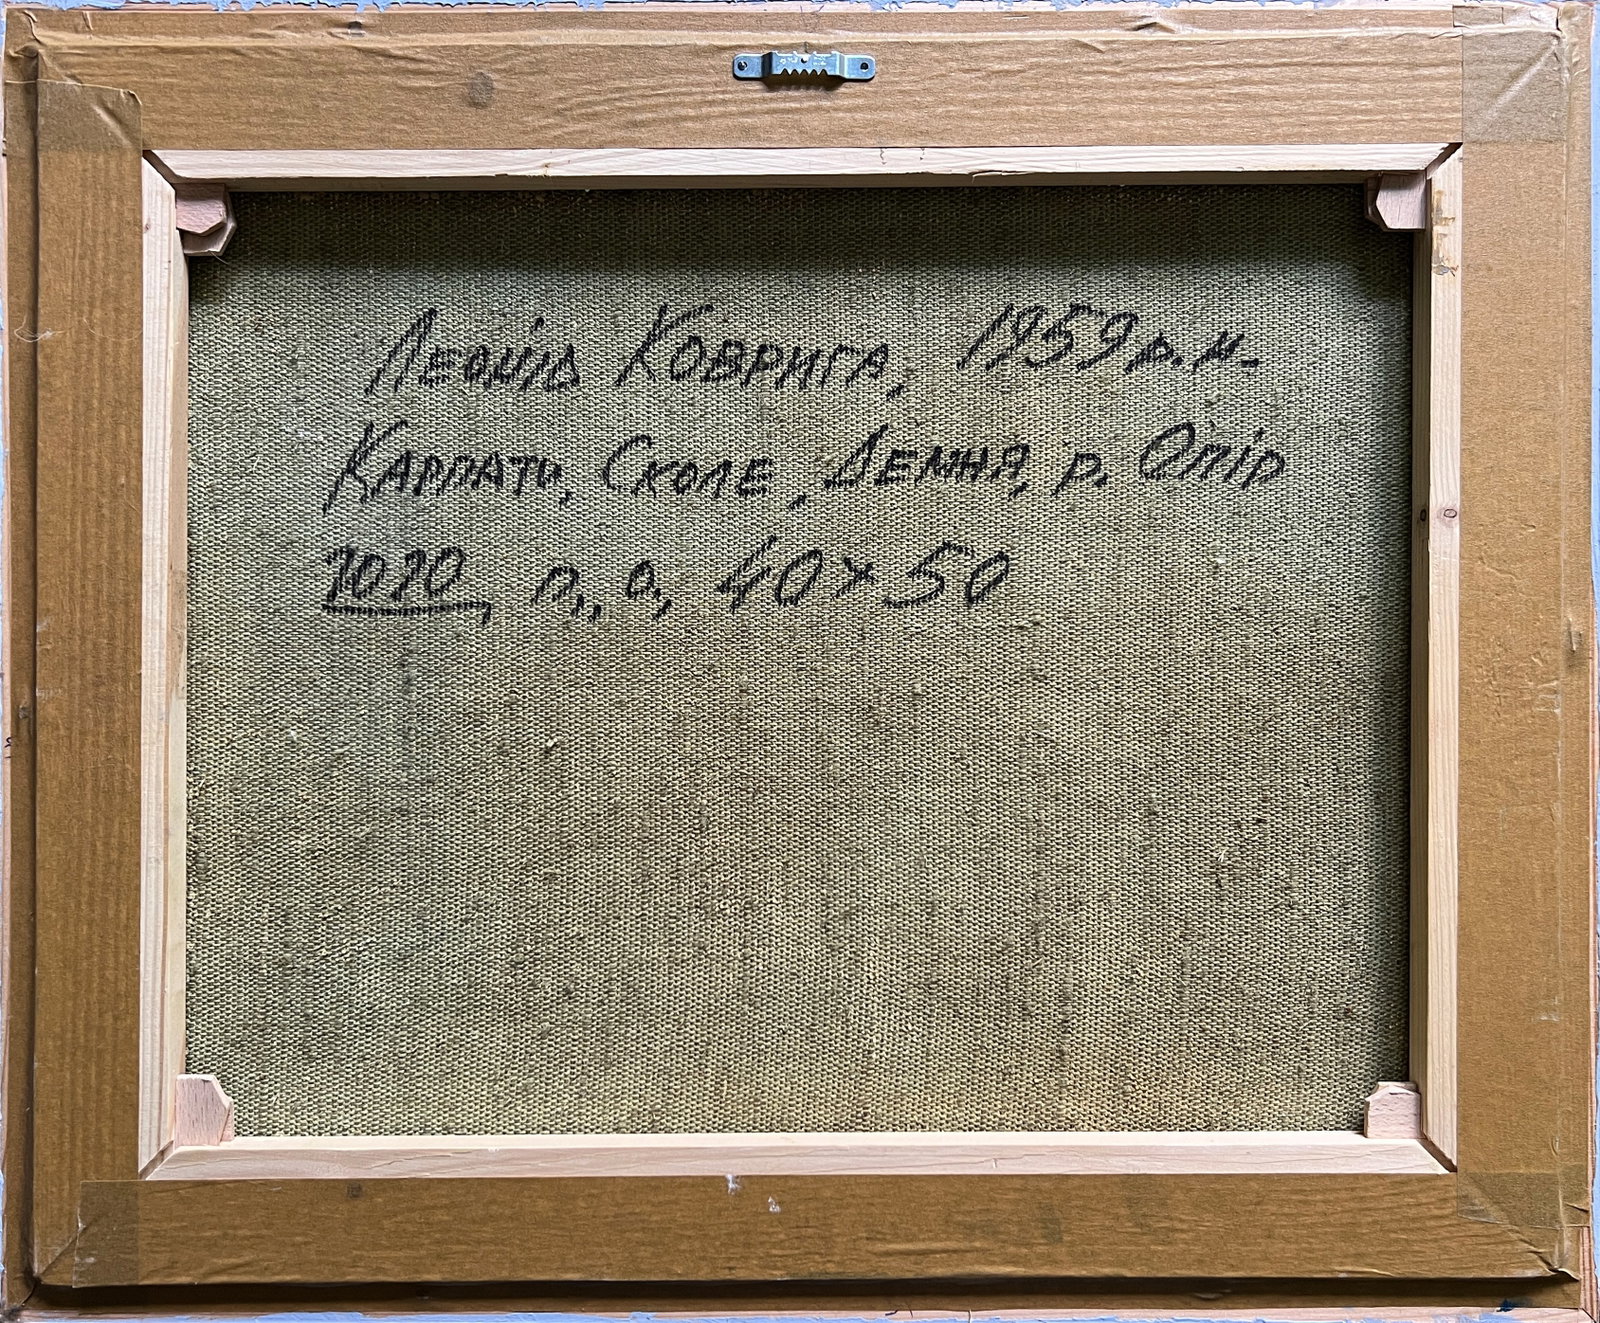 Леонід Коврига, 1959 р.н.
Карпати, Сколе, Демня, р. Опір
2020, п., о., 40×50